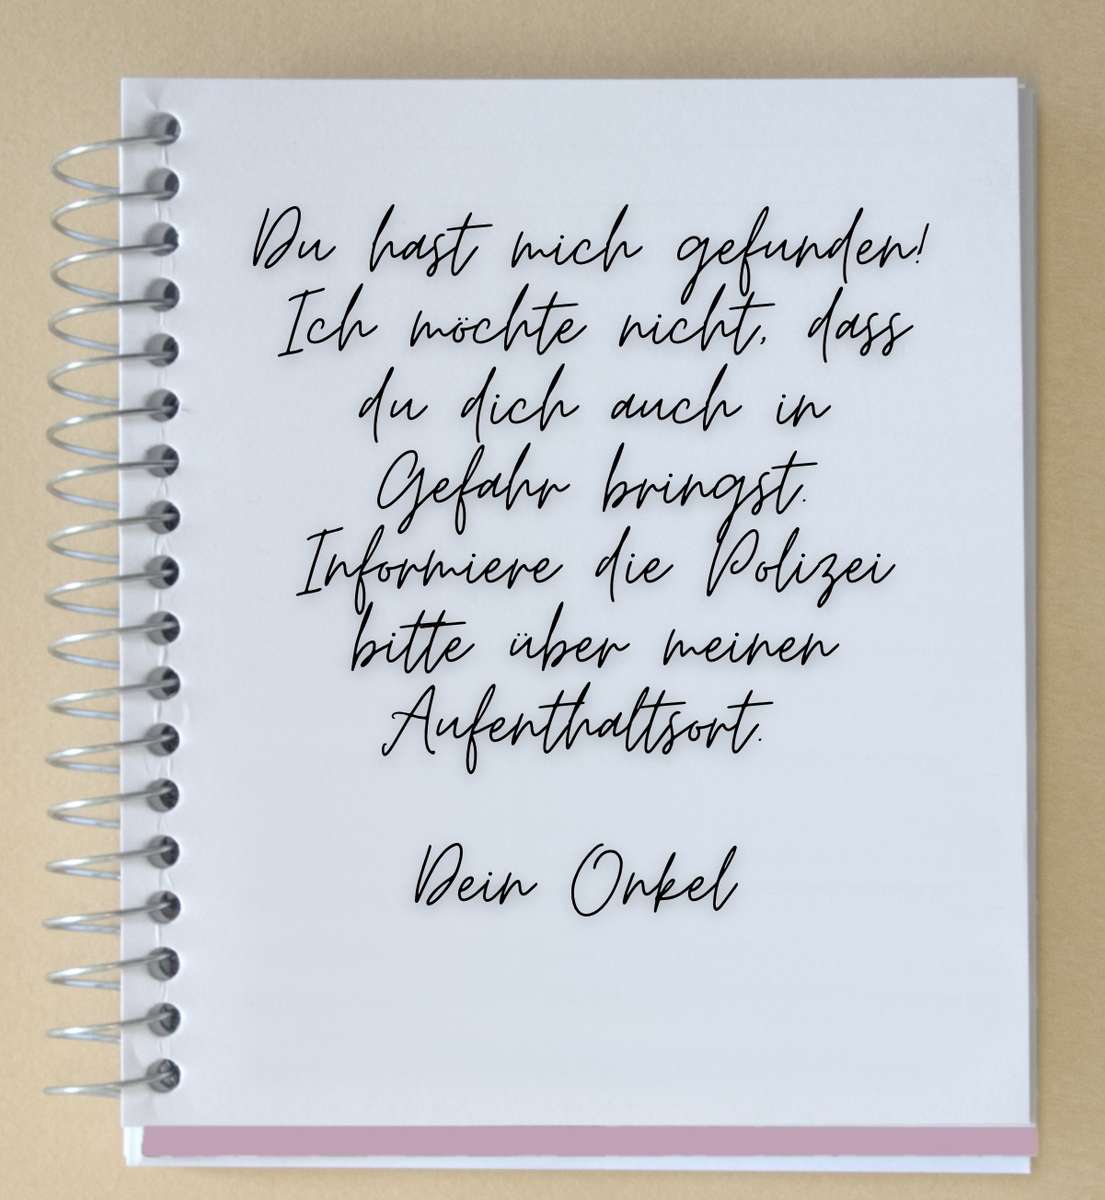 Du hast mich gefunden!
Ich möchte nicht, dass
du dich auch in
Gefahr bringst.
Informiere die Polizei
bitte über meinen
Aufenthaltsort.
Dein Onkel